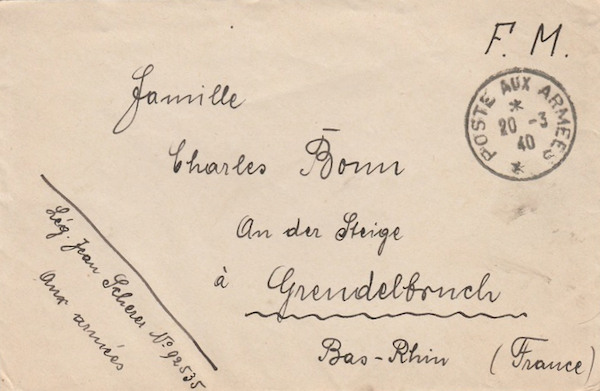 F. M.
POSTE AUX ARMEES
20 -3
40
Famille
Charles Bonn
An der Steige
à Grendelbruch
Bas-Rhin (France)
Lég. Jean Scherer No 92535
Aux armées